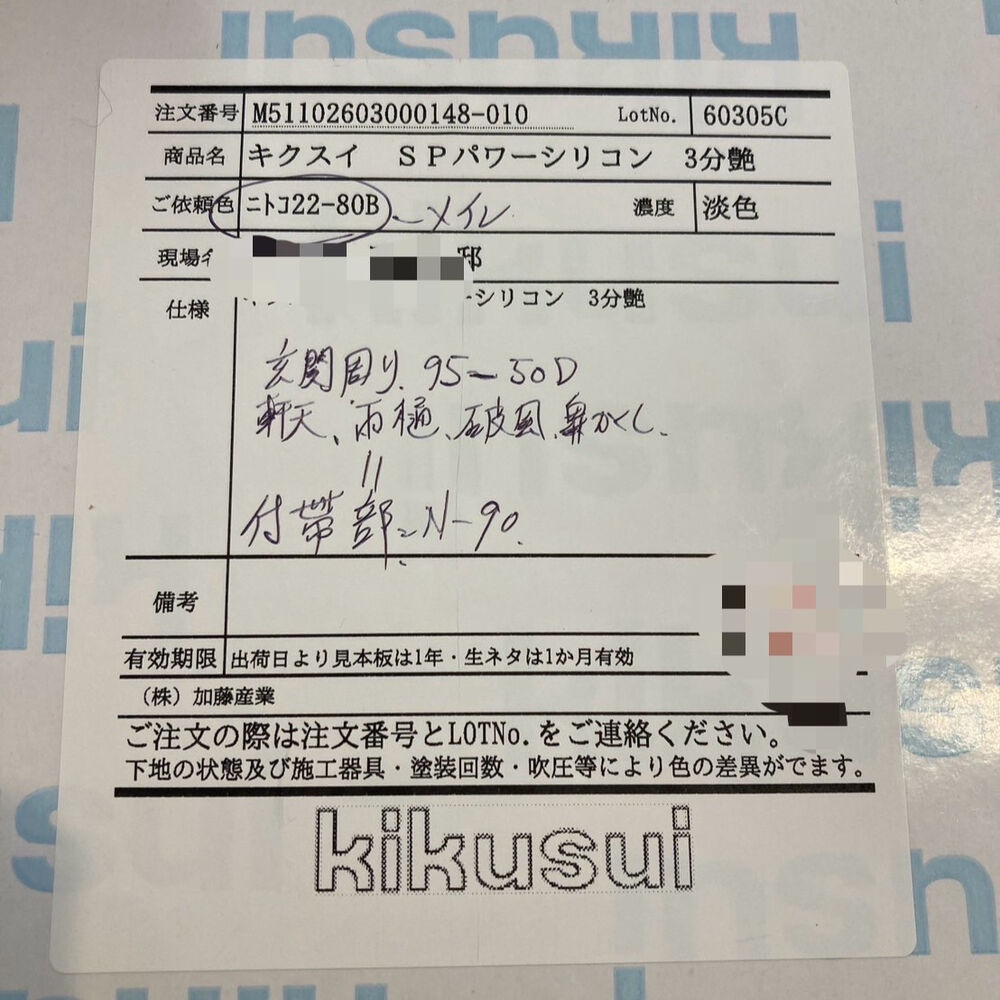 注文番号 M51102603000148-010 LotNo. 60305C
商品名 キクスイ SPパワーシリコン 3分艶
ご依頼色 ニトコ22-80B ～メイン 濃度 淡色
現場名 邸
仕様 シリコン 3分艶
玄関周り、95-50D
軒天、雨樋、破風、鼻かくし、
〃
付帯部=N-90.
備考
有効期限 出荷日より見本板は1年・生ネタは1か月有効
（株）加藤産業
ご注文の際は注文番号とLOTNo.をご連絡ください。
下地の状態及び施工器具・塗装回数・吹圧等により色の差異がでます。
kikusui